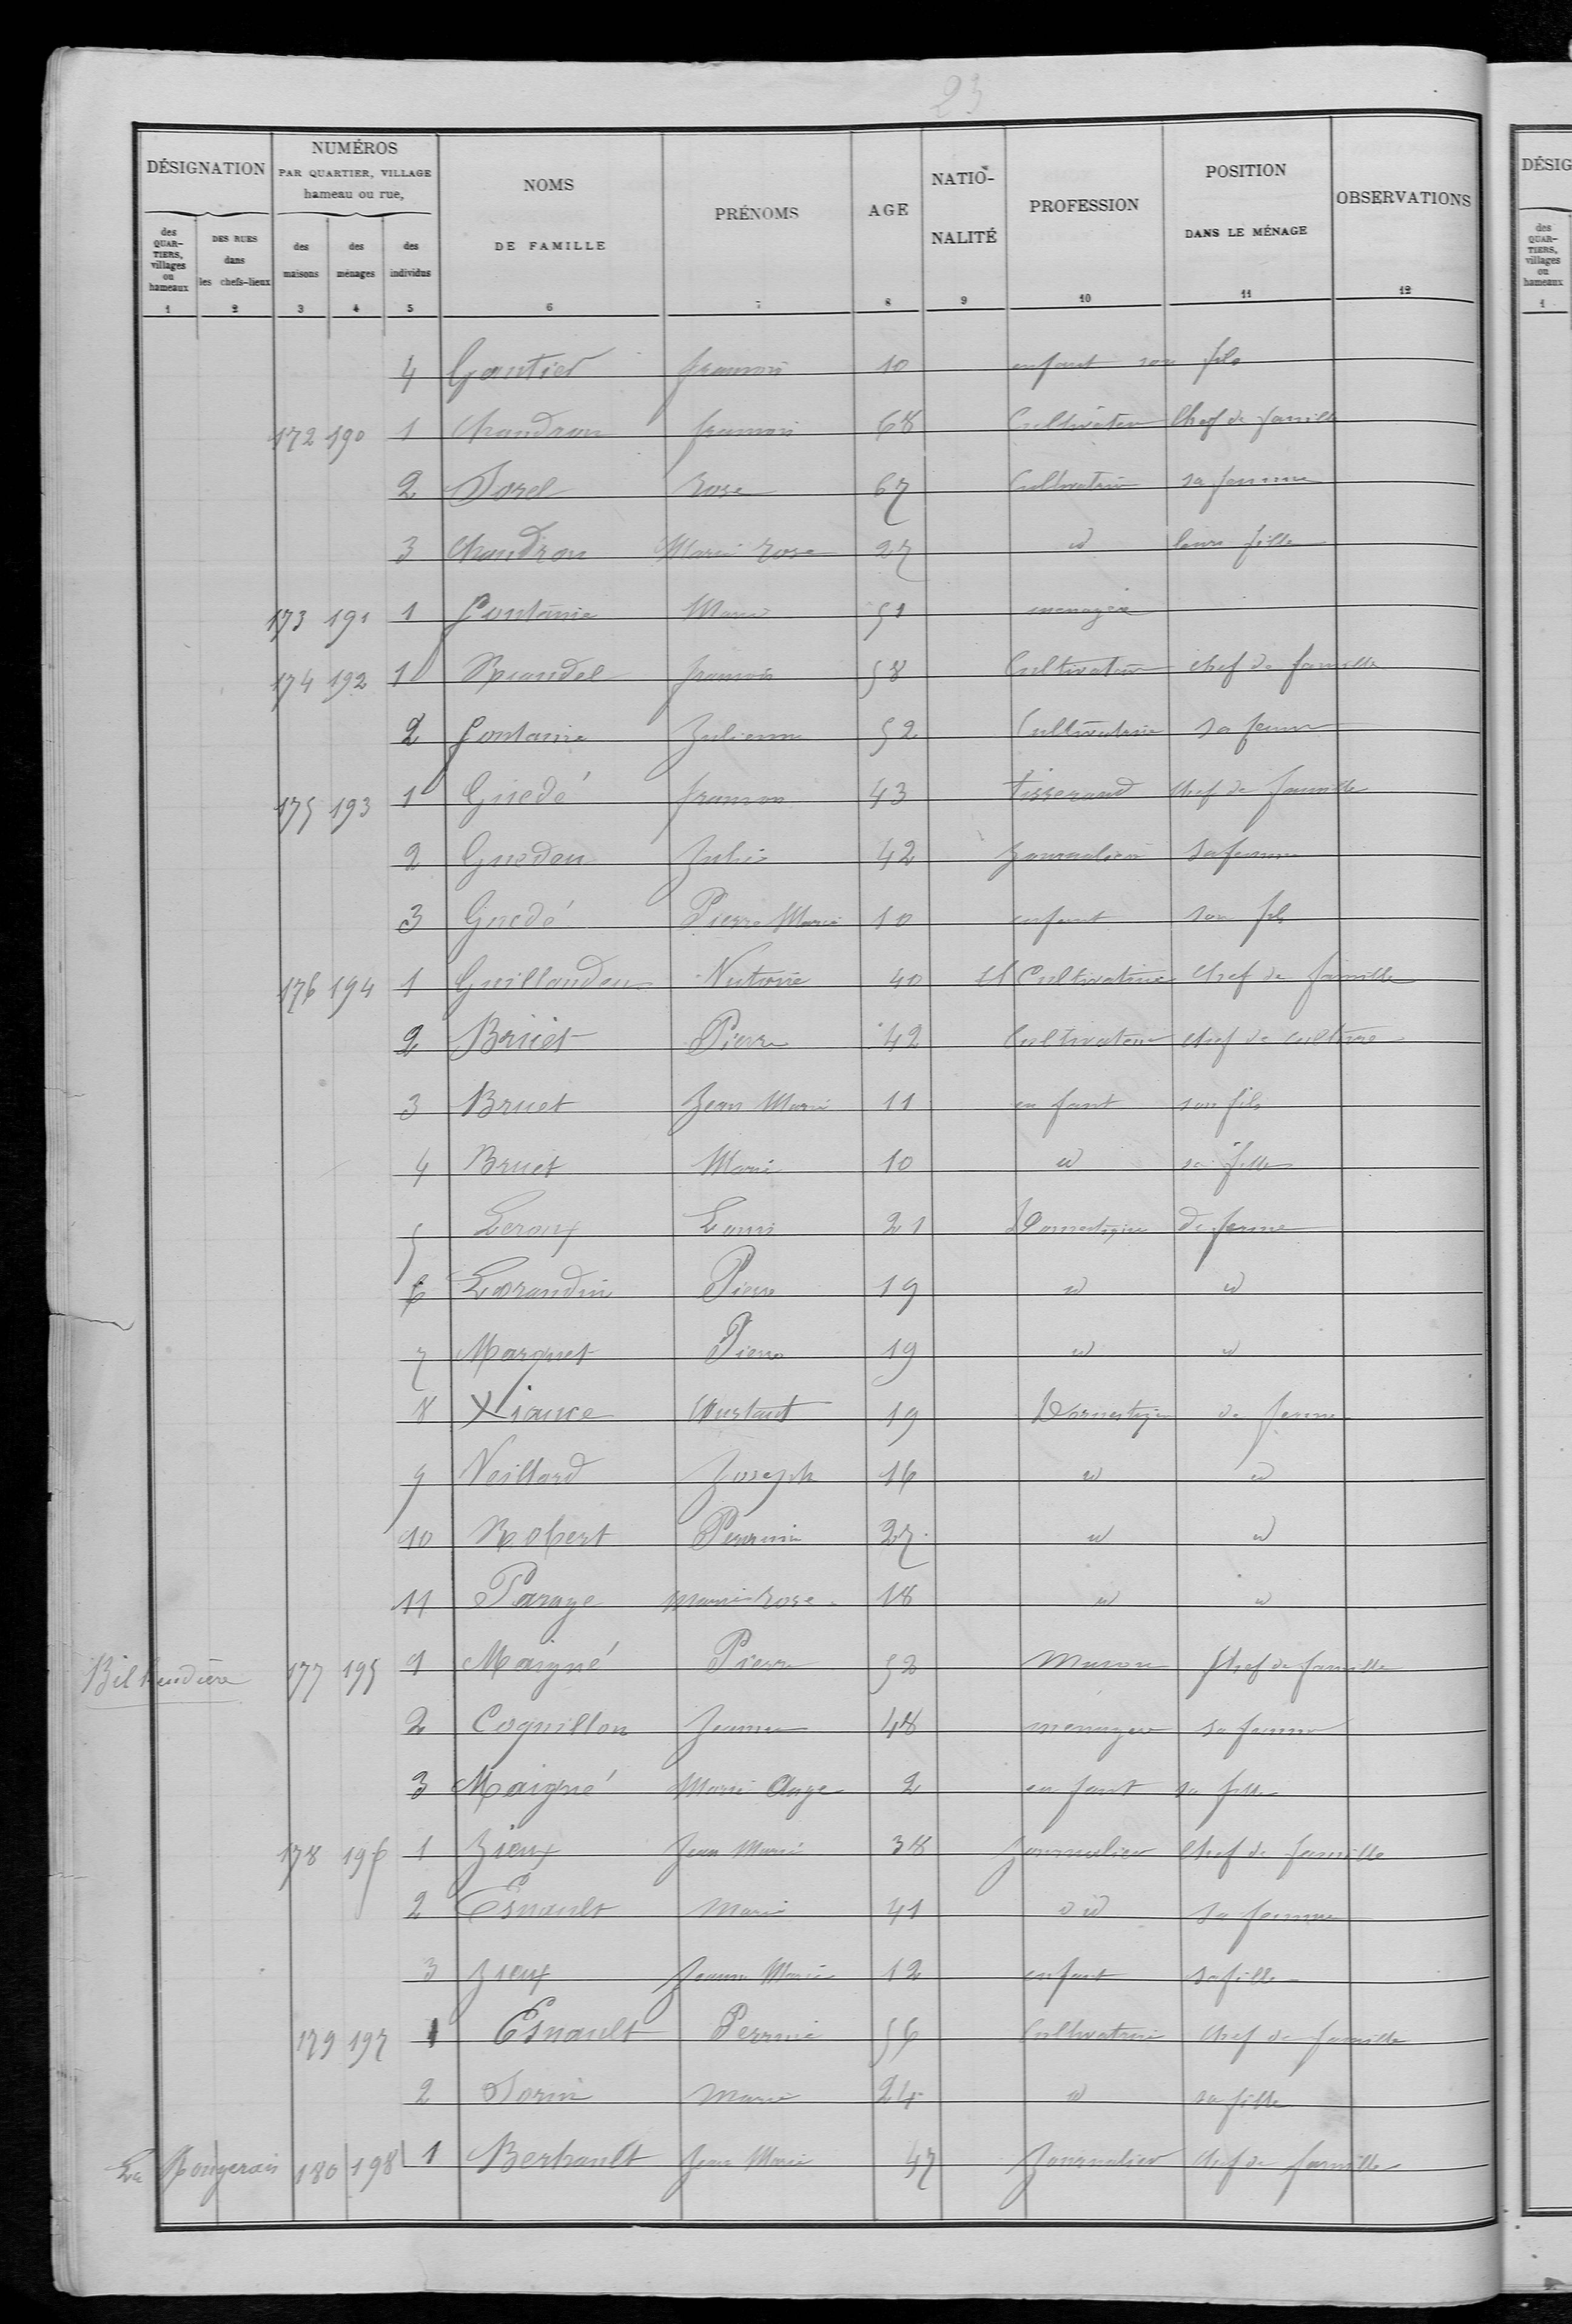 23
DÉSIGNATION NUMÉROS PAR QUARTIER, VILLAGE hameau ou rue, NOMS DE FAMILLE PRÉNOMS AGE NATIO-NALITÉ PROFESSION POSITION DANS LE MÉNAGE OBSERVATIONS
des QUARTIERS, villages ou hameaux DES RUES dans les chefs-lieux des maisons des ménages des individus
1 2 3 4 5 6 7 8 9 10 11 12
4 Gautier francois 10 enfant son fils
172 190 1 Chandron francois 68 Cultivateur Chef de famille
2 Sorel rose 67 Cultivatrice sa femme
3 Chandron Marie rose 27 id leur fille
173 191 1 Fontaine Marie 51 menagère
174 192 1 francois 58 Cultivateur chef de famille
2 Fontaine Julienne 52 Cultivatrice sa femme
175 193 1 Guedé francois 43 tisserand chef de famille
2 Guedeu Julie 42 journalière sa femme
3 Guedé Pierre Marie 10 enfant son fils
176 194 1 Guillaudeu Victoire 40 Cultivatrice chef de famille
2 Bruet Pierre 42 Cultivateur chef de culture
3 Bruet Jean Marie 11 enfant son fils
4 Bruet Marie 10 id sa fille
5 Leroux Louis 21 Domestique de ferme
6 Lorandin Pierre 19 id id
7 Marquet Pierre 19 id id
8 Constant 19 Domestique de ferme
9 Veillard Joseph 16 id id
10 Robert Perrine 27 id id
11 Parage marie rose 18 id id
177 195 1 Maigné Pierre 52 Maçon Chef de famille
2 Coquillon Jeanne 48 ménagère sa femme
3 Maigné Marie Ange 2 enfant sa fille
178 196 1 Jieux Jean Marie 38 journalier Chef de famille
2 Esnault Marie 41 id sa femme
3 Jieux Jeanne Marie 12 enfant sa fille
179 197 1 Esnault Perrine 56 Cultivatrice chef de famille
2 Sorin Marie 24 id sa fille
La Rougerais 180 198 1 Berhault Jean Marie 47 Journalier chef de famille
DÉSIG
des QUARTIERS, villages ou hameaux
1